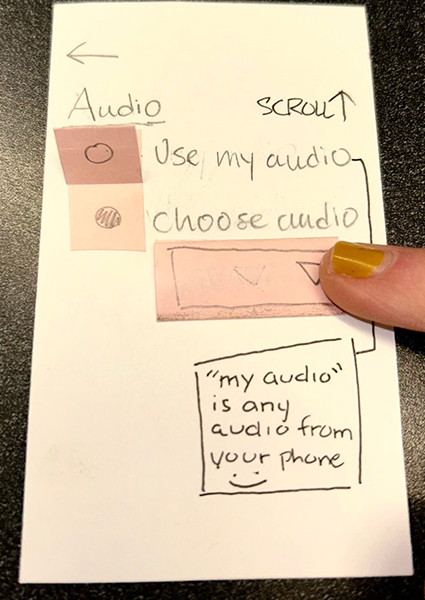 Audio
SCROLL↑
Use my audio
Choose audio
"my audio"
is any
audio from
your phone